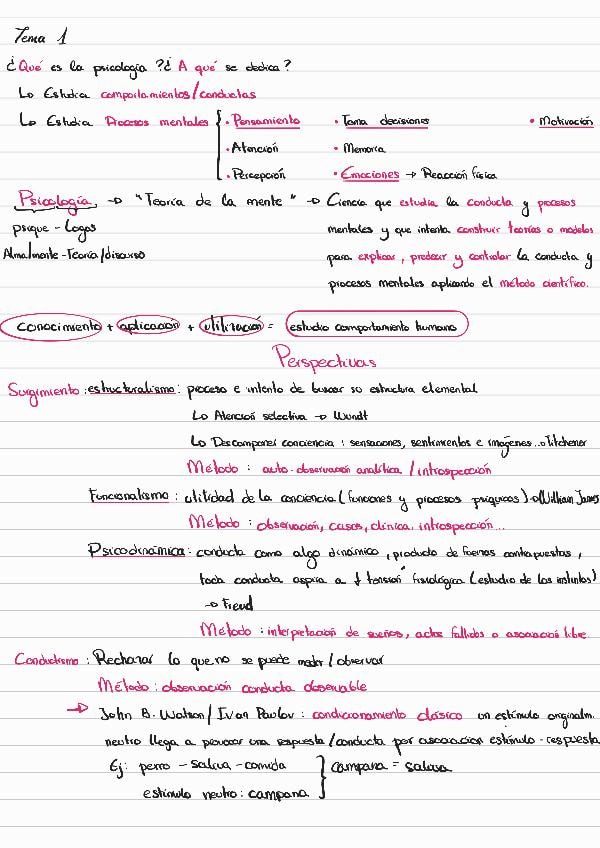 Tema 1
¿Qué es la psicología?¿A qué se dedica?
Lo Estudia comportamientos/conductas
Lo Estudia Procesos mentales { • Pensamiento • Toma decisiones • Motivación
• Atención • Memoria
• Percepción • Emociones → Reacción física
Psicología → "Teoría de la mente" → Ciencia que estudia la conducta y procesos
psique - Logos mentales y que intenta construir teorías o modelos
Alma/mente - Teoría/discurso para explicar, predecir y controlar la conducta y
procesos mentales aplicando el método científico.
conocimiento + aplicación + utilización = estudio comportamiento humano
Perspectivas
Surgimiento: estructuralismo: proceso e intento de buscar su estructura elemental
Lo Atención selectiva → Wundt
Lo Descomponer conciencia: sensaciones, sentimientos e imágenes... Titchener
Método: auto-observación analítica/introspección
Funcionalismo: utilidad de la conciencia (funciones y procesos psíquicos) → William James
Método: observación, casos, clínica, introspección...
Psicodinámica: conducta como algo dinámico, producto de fuerzas contrapuestas,
toda conducta aspira a ↓ tensión fisiológica (estudio de los instintos)
→ Freud
Método: interpretación de sueños, actos fallidos o asociación libre.
Conductismo: Rechazar lo que no se puede medir/observar
Método: observación conducta observable
→ John B. Watson/Ivan Pavlov: condicionamiento clásico un estímulo originalm.
neutro llega a provocar una respuesta/conducta por asociación estímulo-respuesta
Ej: perro - saliva - comida } campana = saliva
estímulo neutro: campana